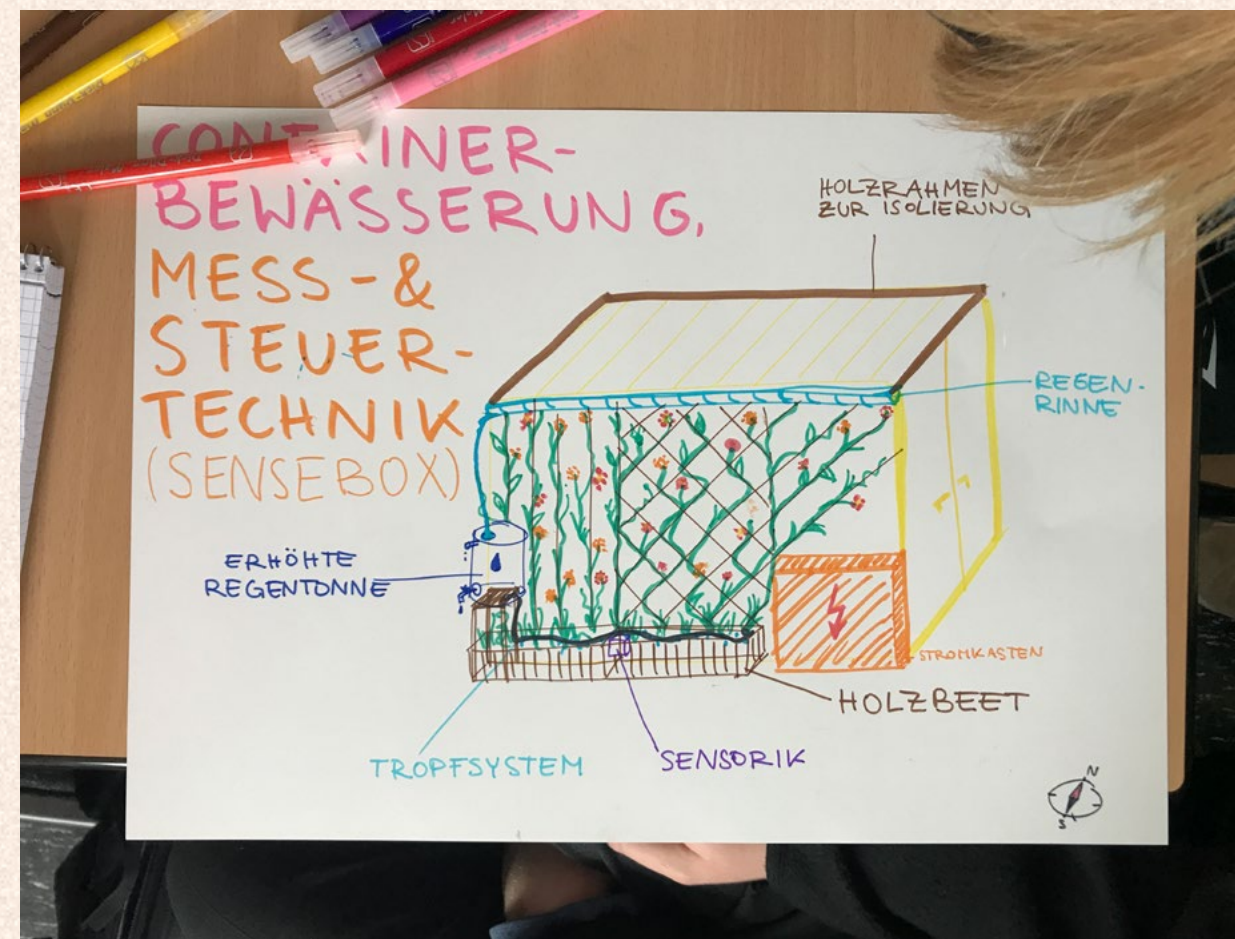 CONTAINER-
BEWÄSSERUNG,
MESS- &
STEUER-
TECHNIK
(SENSEBOX)
HOLZRAHMEN
ZUR ISOLIERUNG
REGEN-
RINNE
ERHÖHTE
REGENTONNE
STROMKASTEN
HOLZBEET
TROPFSYSTEM
SENSORIK
N
S